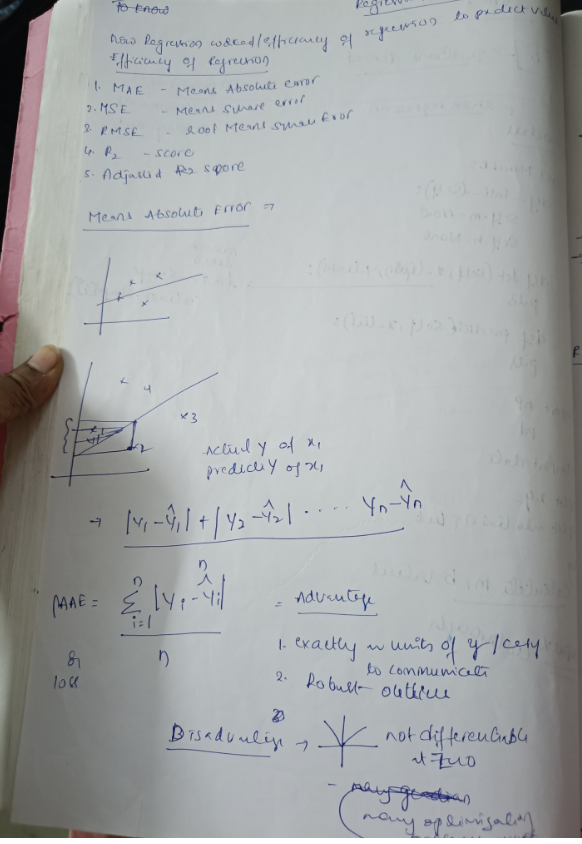 TO KNOW
Regression to predict value
How Regression worked/efficiency of
Efficiency of Regression
1. MAE - Means Absolute error
2. MSE - Means square error
3. RMSE - Root Means square Error
4. R2 - score
5. Adjusted R2 score
Means Absolute Error ⇒
4
x3
2
Actual Y of x1
predict Y of x1
→ |y1 - ŷ1| + |y2 - ŷ2| .... yn - ŷn
MAE = n Σ i=1 |yi - ŷi| / n = Advantage
1. exactly in units of y / easy
to communicate
or
loss
2. Robust outlier
Disadvantage → not differentiable
at zero
- many
many optimization